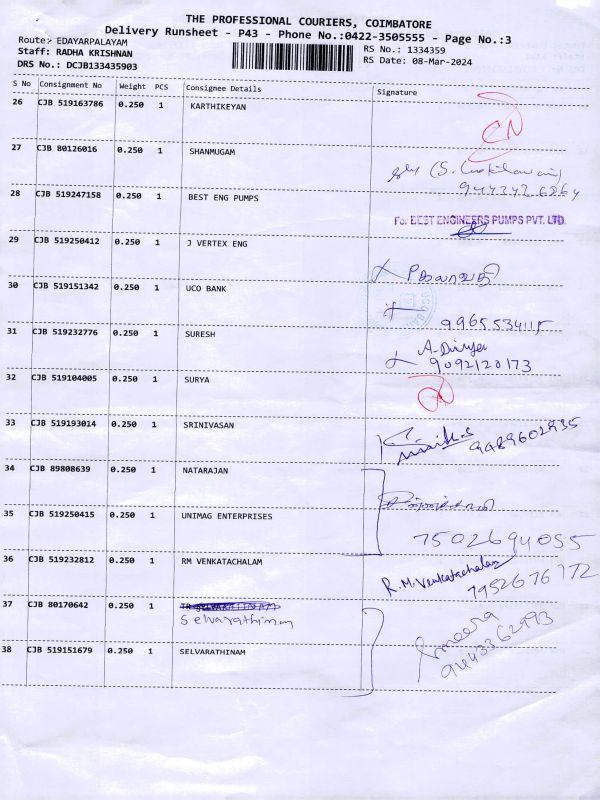 THE PROFESSIONAL COURIERS, COIMBATORE
Delivery Runsheet - P43 - Phone No.:0422-3505555 - Page No.:3
Route:- EDAYARPALAYAM
RS No.: 1334359
Staff: RADHA KRISHNAN
RS Date: 08-Mar-2024
DRS No.: DCJB133435903
S No Consignment No Weight PCS Consignee Details Signature
26 CJB 519163786 0.250 1 KARTHIKEYAN
CN
27 CJB 80126016 0.250 1 SHANMUGAM
28 CJB 519247158 0.250 1 BEST ENG PUMPS
For BEST ENGINEERS PUMPS PVT. LTD.
29 CJB 519250412 0.250 1 J VERTEX ENG
30 CJB 519151342 0.250 1 UCO BANK
9965534115
31 CJB 519232776 0.250 1 SURESH
A. Divya
9092120173
32 CJB 519104005 0.250 1 SURYA
33 CJB 519193014 0.250 1 SRINIVASAN
9489602935
34 CJB 89808639 0.250 1 NATARAJAN
35 CJB 519250415 0.250 1 UNIMAG ENTERPRISES
7502694055
36 CJB 519232812 0.250 1 RM VENKATACHALAM
R.M. Venkatachalam
7952676172
37 CJB 80170642 0.250 1
Selvarathinam
38 CJB 519151679 0.250 1 SELVARATHINAM
Ameena
9443362993